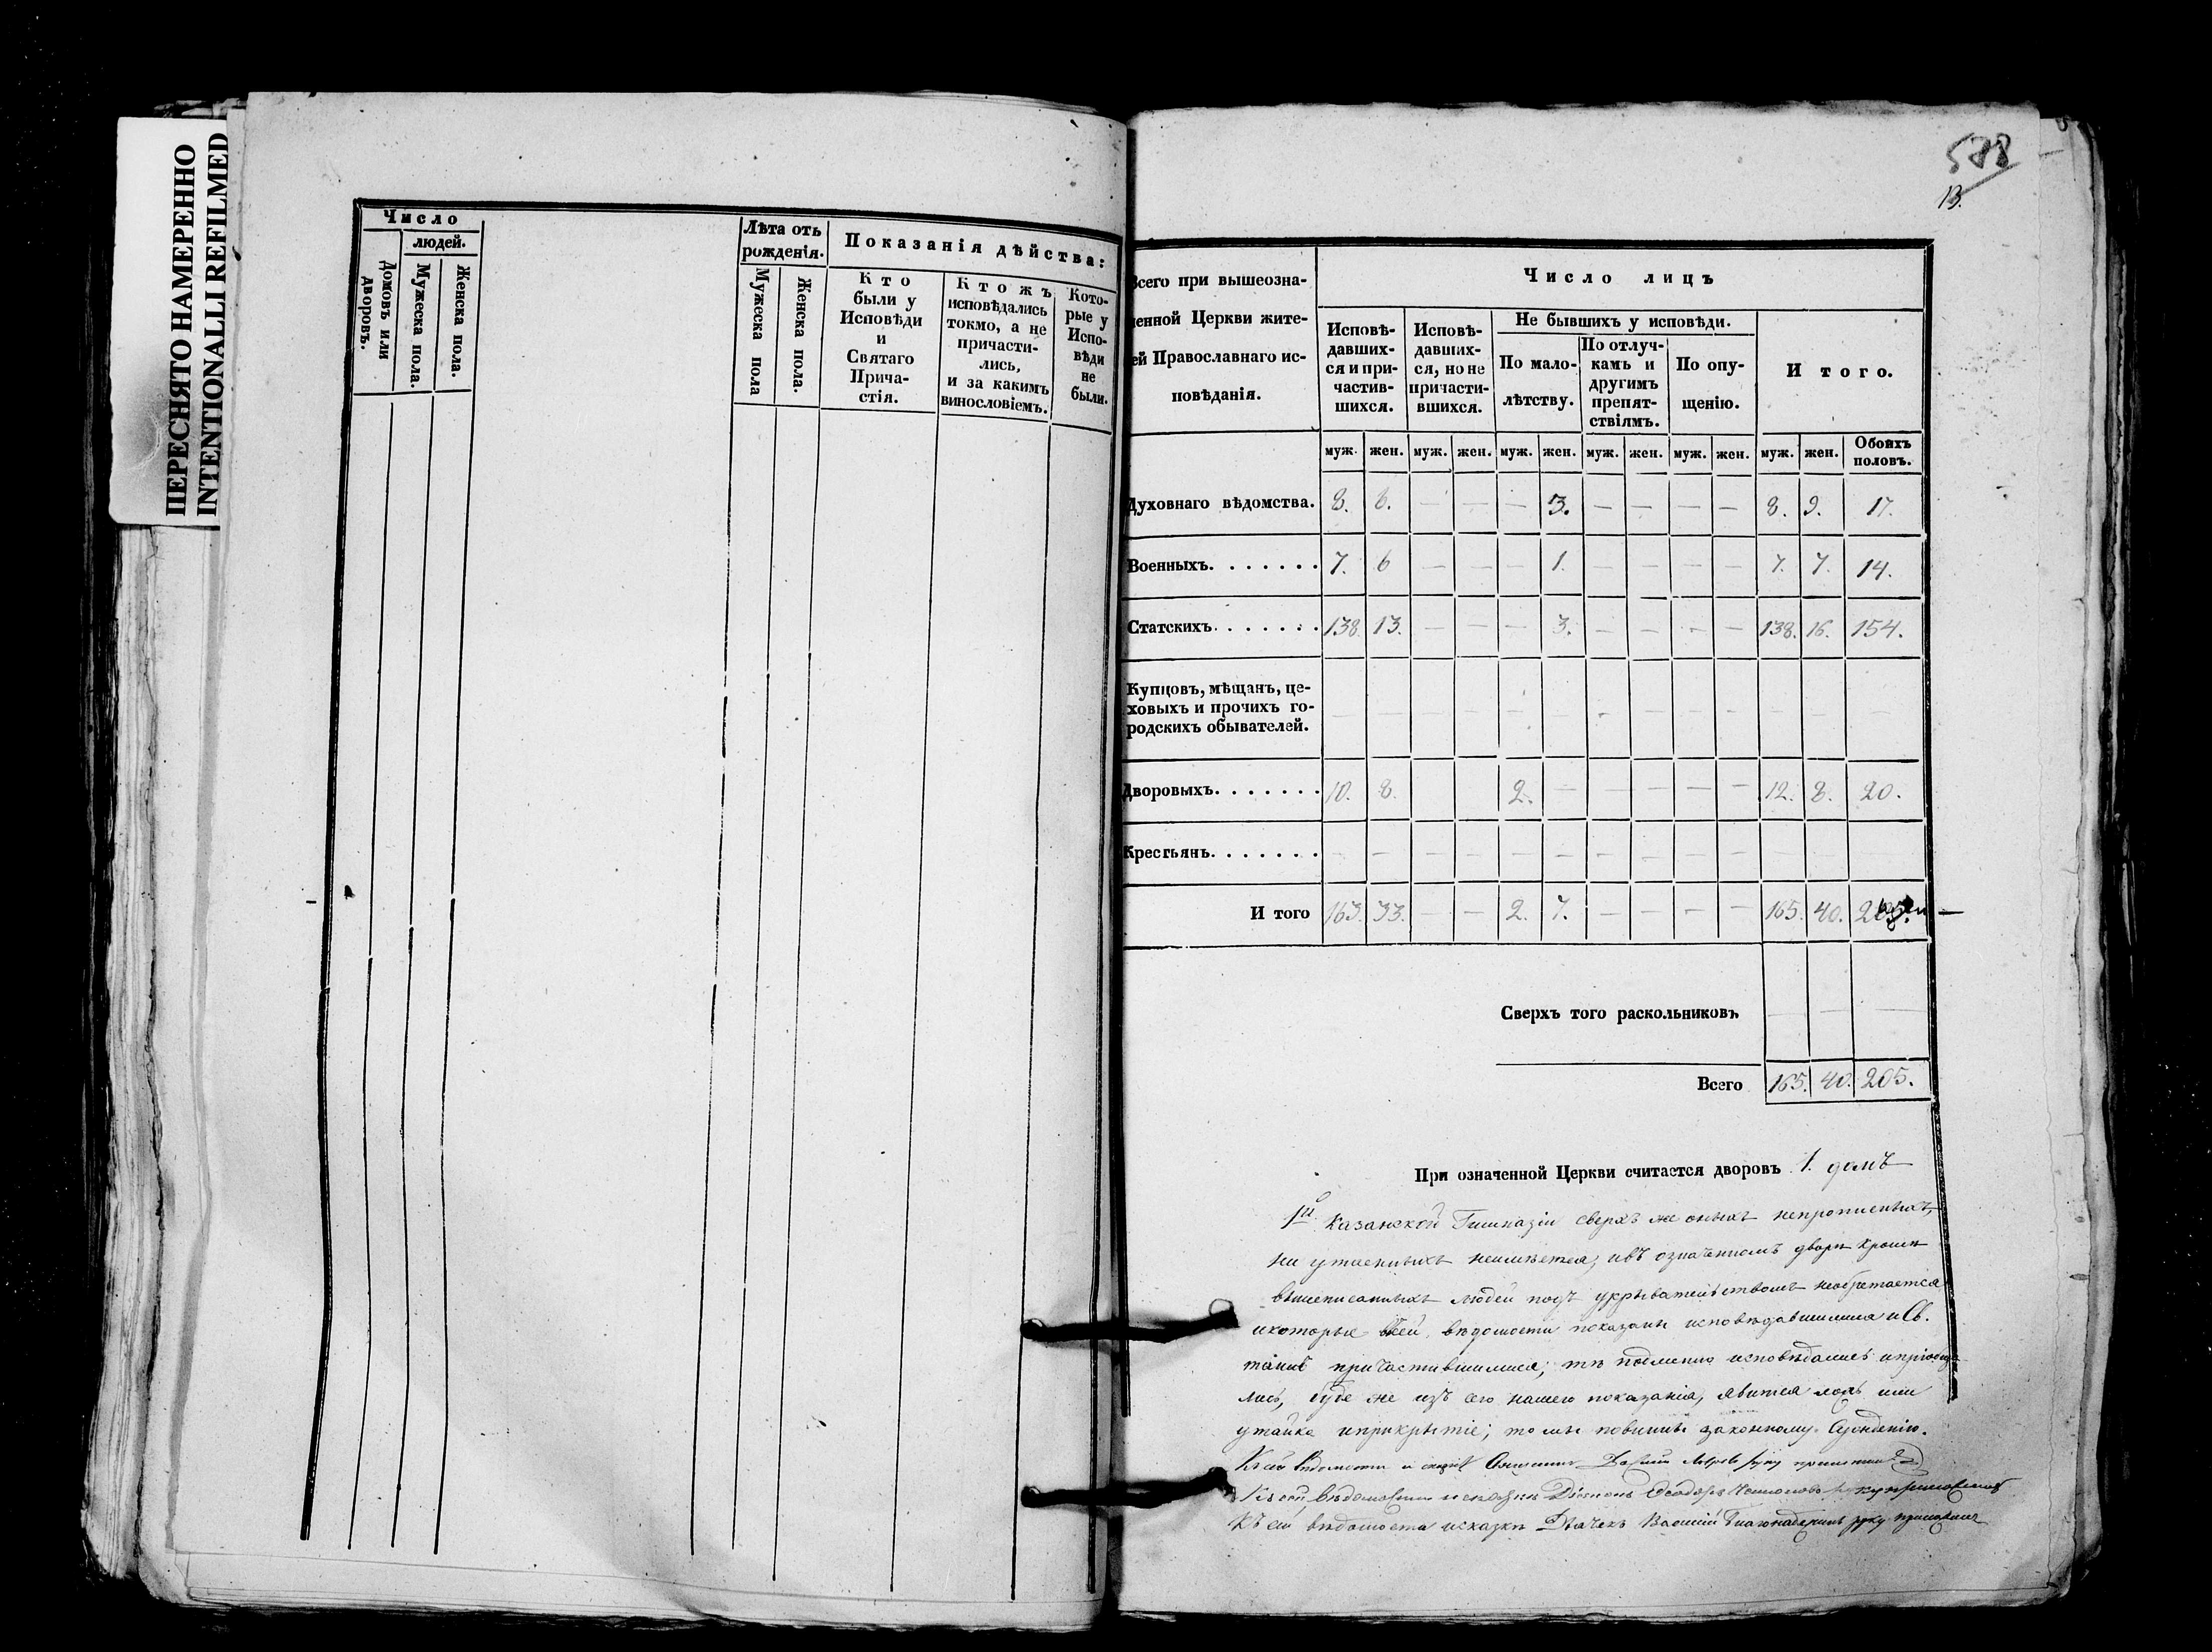 ПЕРЕСНЯТО НАМЕРЕННО
INTENTIONALLI REFILMED
Число
людей.
Домовъ или
дворовъ.
Мужеска пола.
Женска пола.
Лѣта отъ
рожденія.
Мужеска пола
Женска пола.
Показанія дѣйства:
Кто
были у
Исповѣди
и
Святаго
Прича-
стія.
Ктожъ
исповѣдались
токмо, а не
причасти-
лись,
и за какимъ
винословіемъ.
Кото-
рые у
Испо-
вѣди
не
были.
588
13.
Всего при вышеозна-
ченной Церкви жите-
ей Православнаго ис-
повѣданія.
Число лицъ
Исповѣ-
давших-
ся и при-
частив-
шихся.
Исповѣ-
давших-
ся, но не
причасти-
вшихся.
Не бывшихъ у исповѣди.
По мало-
лѣтству.
По отлуч-
камъ и
другимъ
препят-
ствіямъ.
По опу-
щенію.
И того.
муж. жен. муж. жен. муж. жен. муж. жен. муж. жен. муж. жен. Обоихъ
половъ.
Духовнаго вѣдомства. 8. 6. — — — 3. — — — — 8. 9. 17.
Военныхъ. . . . . . . 7. 6 — — — 1. — — — — 7. 7. 14.
Статскихъ. . . . . . . 138. 13. — — — 3. — — — — 138. 16. 154.
Купцовъ, мѣщанъ, це-
ховыхъ и прочихъ го-
родскихъ обывателей. — — — — — — — — — — — — —
Дворовыхъ. . . . . . . 10. 8. 2. — — — — — 12. 8. 20.
Крестьянъ. . . . . . . — — — — — — — — — —
И того 163. 33. — — 2. 7. — — — — 165. 40. 205.
Сверхъ того раскольниковъ — — —
Всего 165. 40. 205.
При означенной Церкви считается дворовъ 1. домъ
1й Казанской Гимназіи сверхъ же оныхъ непрописныхъ,
ни утаенныхъ неимѣется, ивъ означенномъ дворѣ кромѣ
вышеписанныхъ людей подъ укрывательствомъ необретается
икоторые всей вѣдомости показаны исповѣдавшимися иСв.
таинъ причастившимися; тѣ исповѣдались
лись, буде же изъ сего нашего показанія, явится ложь или
утайка иприкрытіе; то мы повинны законному Сужденію.
Къ сей Вѣдомости и Священникъ руку приложилъ
Къ сей вѣдомости исказкѣ Діаконъ Ѳеодоръ руку приложилъ
Къ сей вѣдомости исказкѣ Дьячекъ Василій руку приложилъ